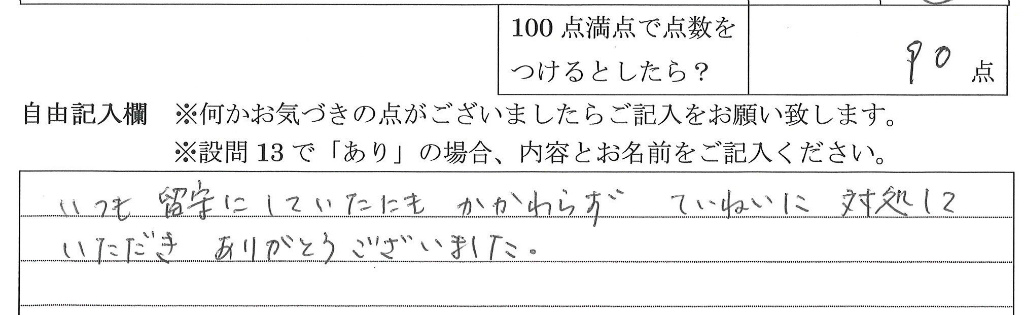 100点満点で点数を
つけるとしたら？
90 点
自由記入欄 ※何かお気づきの点がございましたらご記入をお願い致します。
※設問13で「あり」の場合、内容とお名前をご記入ください。
いつも 留守にしていたにも かかわらず ていねいに 対処して
いただき ありがとうございました。